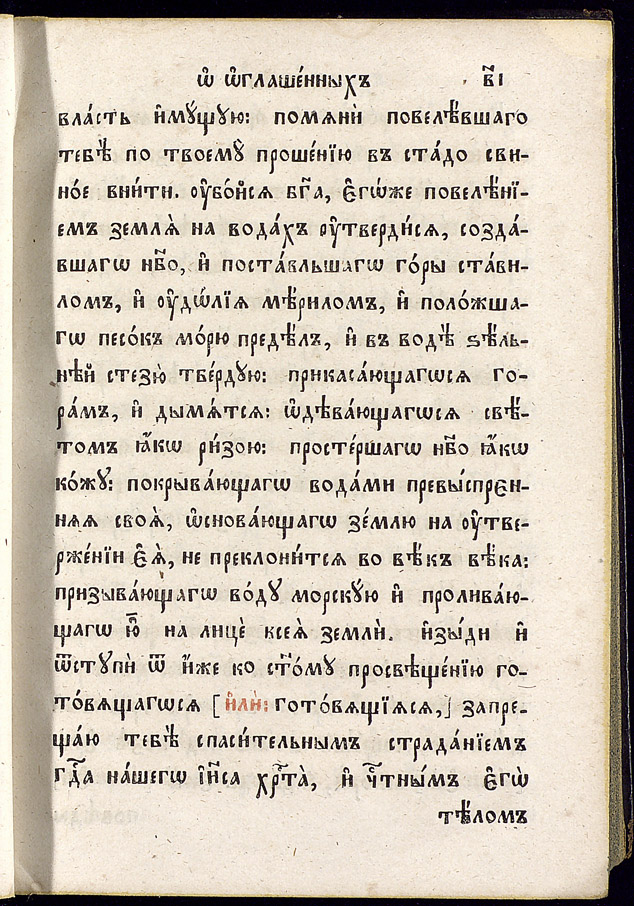 Ѽ ѡ҆глаше́нныхъ в҃і
вла́сть и҆мꙋ́щꙋю: помѧнѝ повелѣ́вшаго
тебѣ̀ по твоемꙋ̀ проше́нїю въ ста́до сви-
но́е вни́ти. ᲂу҆бо́йсѧ бг҃а, є҆гѡ́же повелѣ́нї-
емъ землѧ̀ на вода́хъ ᲂу҆тверди́сѧ, созда́-
вшагѡ нб҃о, и҆ поста́вльшагѡ го́ры ста́ви-
ломъ, и҆ ᲂу҆дѡ́лїѧ мѣ́риломъ, и҆ поло́жша-
гѡ песо́къ мо́рю предѣ́лъ, и҆ въ водѣ̀ ѕѣ́ль-
нѣй стезю̀ тве́рдꙋю: прикаса́ющагѡсѧ го-
ра́мъ, и҆ дымѧ́тсѧ: ѡ҆дѣва́ющагѡсѧ свѣ́-
томъ ꙗ҆́кѡ ри́зою: просте́ршагѡ нб҃о ꙗ҆́кѡ
ко́жꙋ: покрыва́ющагѡ вода́ми превы́спрєн-
нѧѧ своѧ̀, ѡ҆снова́ющагѡ зе́млю на ᲂу҆тве-
рже́нїи є҆ѧ̀, не преклони́тсѧ во вѣ́къ вѣ́ка:
призыва́ющагѡ во́дꙋ морскꙋ́ю и҆ пролива́ю-
щагѡ ю҆̀ на лицѐ всеѧ̀ землѝ. и҆зы́ди и҆
ѿстꙋпѝ ѿ и҆́же ко ст҃о́мꙋ просвѣще́нїю го-
то́вѧщагѡсѧ [и҆лѝ: гото́вѧщїѧсѧ,] запре-
ща́ю тебѣ̀ спаси́тельнымъ страда́нїемъ
гдⷭ҇а на́шегѡ і҆и҃са хрⷭ҇та̀, и҆ чⷭ҇тны́мъ є҆гѡ̀
тѣ́ломъ